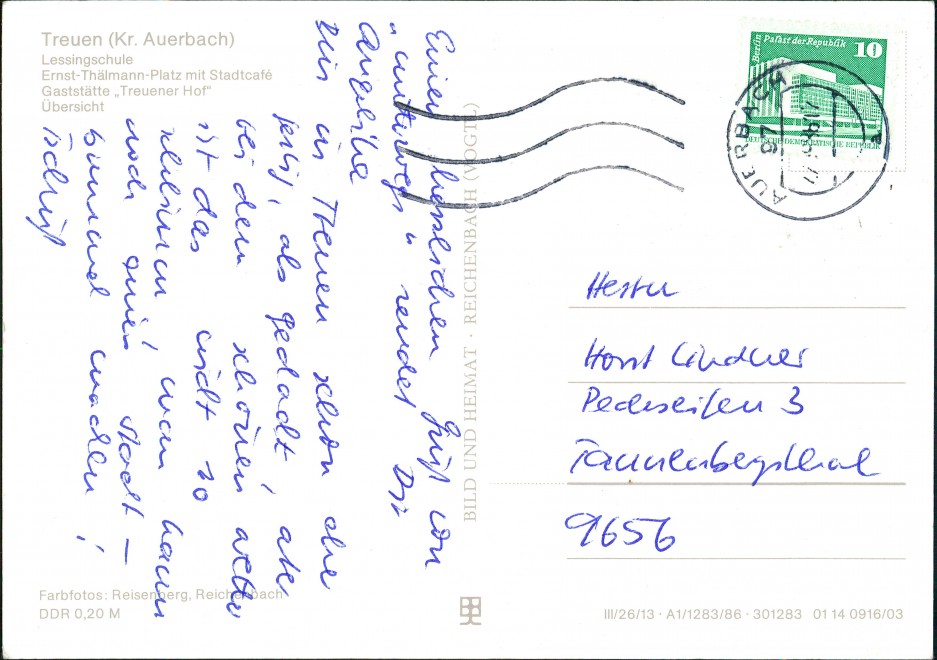 Treuen (Kr. Auerbach)
Lessingschule
Ernst-Thälmann-Platz mit Stadtcafé
Gaststätte „Treuener Hof"
Übersicht
Einen herzlichen Gruß von
„unterwegs" sendet Dir
Angelika
Bin in Treuen schon ohne
als gedacht, aber
bei dem schönen Wetter
ist das nicht so
schlimm, man kann
noch einen Stadt-
bummel machen!
Tschüß
Farbfotos: Reisenberg, Reichenbach
DDR 0,20 M
BILD UND HEIMAT · REICHENBACH (VOGTL)
Berlin
Palast der Republik
10
DEUTSCHE DEMOKRATISCHE REPUBLIK
AUERBACH
Herrn
Horst Lindner
Pechseifen 3
Tannenbergsthal
9656
III/26/13 · A1/1283/86 · 301283 01 14 0916/03